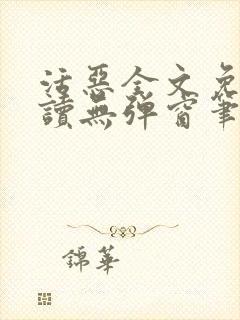 活惡全文免
讀無彈窗筆
錦華